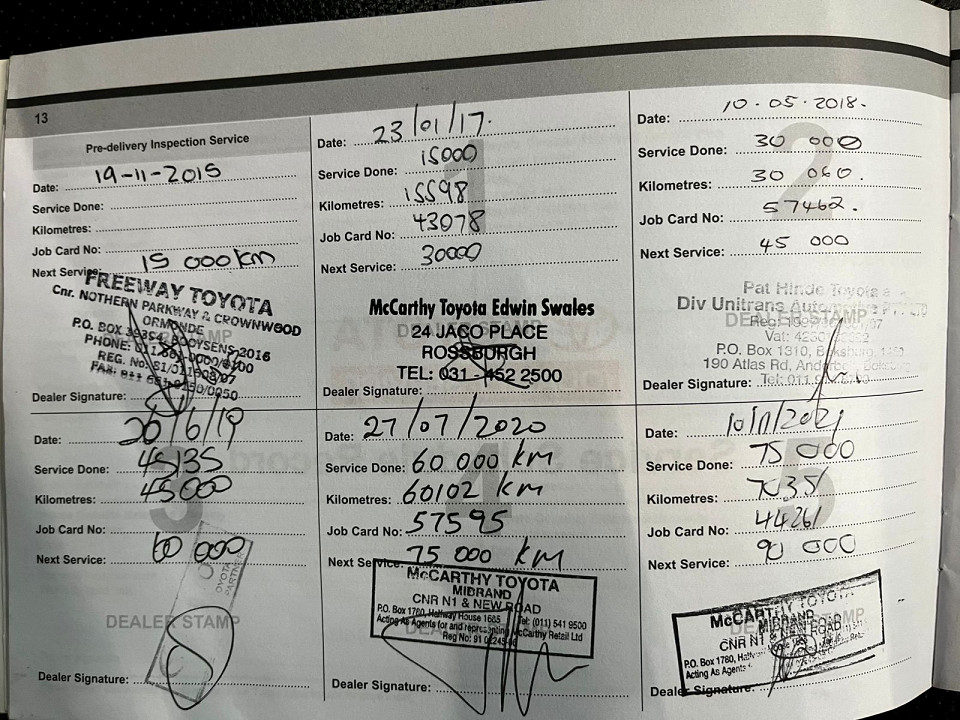 13
Pre-delivery Inspection Service
Date: 19-11-2015
Service Done:
Kilometres:
Job Card No:
Next Service: 15 000km
FREEWAY TOYOTA
Cnr. NOTHERN PARKWAY & CROWNWOOD
ORMONDE
P.O. BOX 39354, BOOYSENS 2016
PHONE: 011
REG. No.
FAX: 011
Dealer Signature:
Date: 23/01/17.
Service Done: 15000
Kilometres: 15598
Job Card No: 43078
Next Service: 30000
McCarthy Toyota Edwin Swales
24 JACO PLACE
ROSSBURGH
TEL: 031 - 452 2500
Dealer Signature:
Date: 10.05.2018.
Service Done: 30 000
Kilometres: 30 060.
Job Card No: 57462.
Next Service: 45 000
2
Pat Hinde Toyota
Div Unitrans Automotive
DEALER STAMP
Vat:
P.O. Box 1310, Boksburg,
190 Atlas Rd,
Dealer Signature: Tel: 011
Date: 20/6/19
Service Done: 45135
Kilometres: 45000
Job Card No:
Next Service: 60 000
3
DEALER STAMP
Dealer Signature:
Date: 27/07/2020
Service Done: 60 000 km
Kilometres: 60102 km
Job Card No: 57595
Next Service: 75 000 km
McCARTHY TOYOTA
MIDRAND
CNR N1 & NEW ROAD
P.O. Box 1760, Halfway House 1685 Tel: (011) 541 9500
Acting As Agents for and representing McCarthy Retail Ltd
Reg No: 91
Dealer Signature:
Date: 10/11/2021
Service Done: 75 000
Kilometres:
Job Card No: 44261
Next Service: 90 000
5
McCARTHY TOYOTA
MIDRAND
CNR N1 & NEW ROAD
P.O. Box 1780,
Acting As Agents
Dealer Signature: